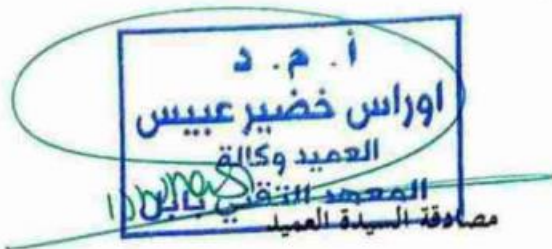 أ . م . د
اوراس خضير عبيس
العميد وكالة
المعهد التقني بابل
مصادقة السيدة العميد